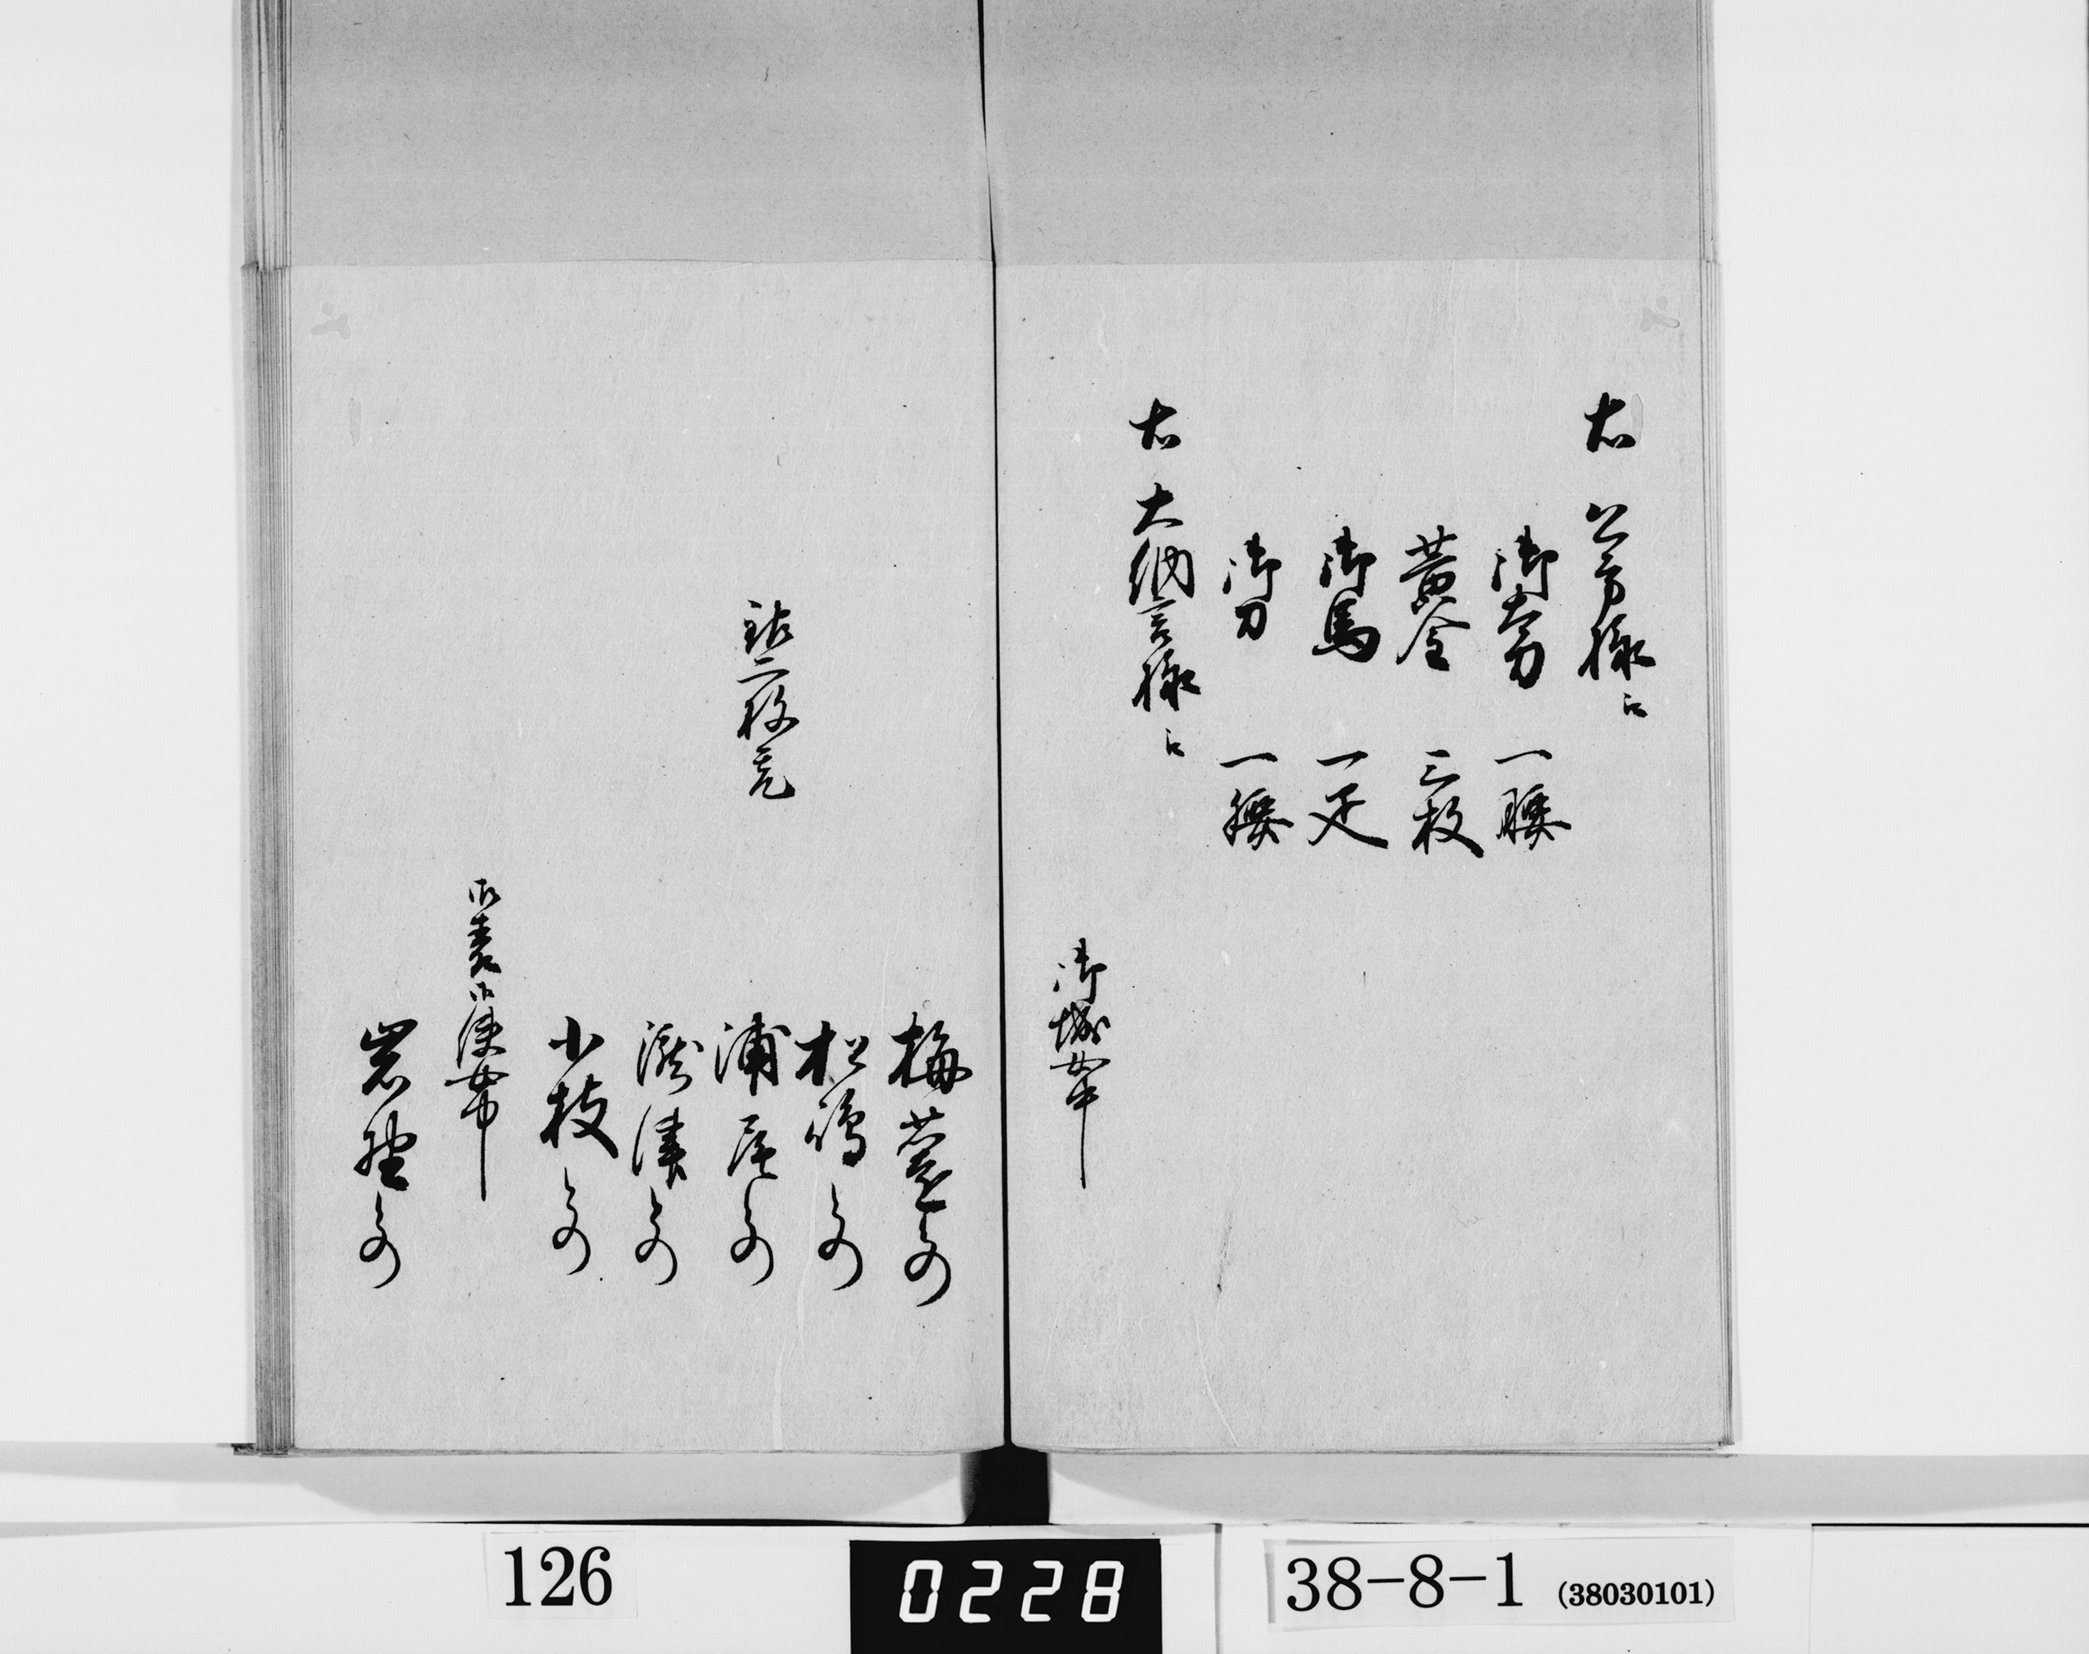 右　公方様江
御太刀　一腰
黄金　三枚
御馬　一疋
御刀　一腰
右　大納言様江
御城女中
梅薗との
松嶋との
浦尾との
銀二枚充
瀧津との
小枝との
御表御使女中
岩野との
126
0228
38-8-1 (38030101)